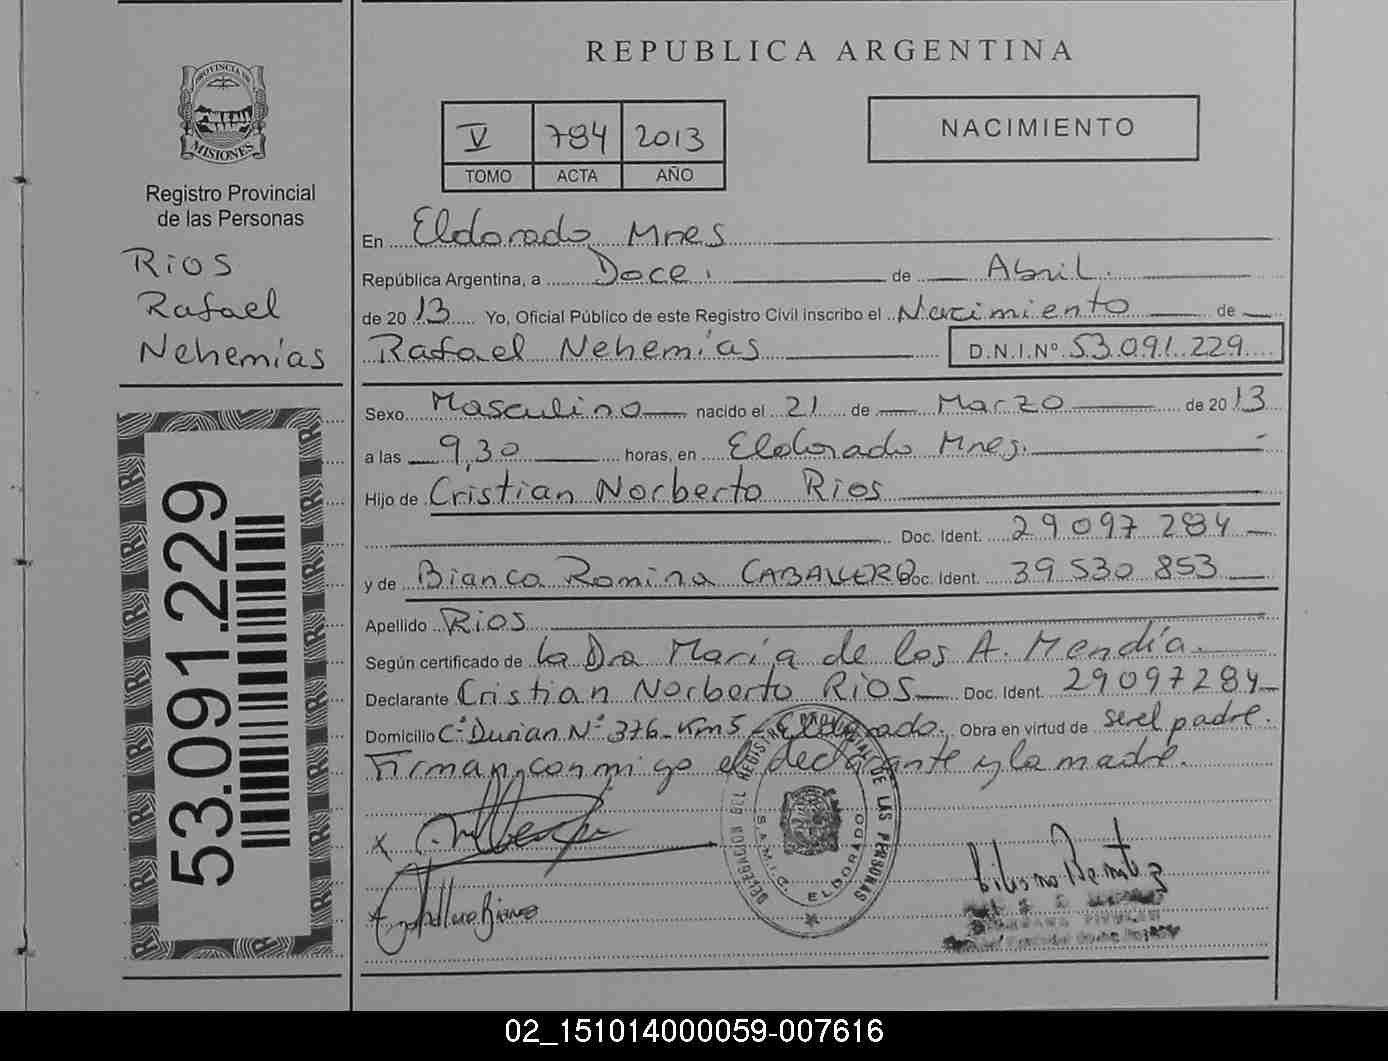 PROVINCIA DE
MISIONES
Registro Provincial
de las Personas
Rios
Rafael
Nehemías
53.091.229
REPUBLICA ARGENTINA
V 784 2013
TOMO ACTA AÑO
NACIMIENTO
En Eldorado Mnes
República Argentina, a Doce de Abril
de 2013 Yo, Oficial Público de este Registro Civil inscribo el Nacimiento de
Rafael Nehemías D.N.I.Nº 53.091.229
Sexo Masculino nacido el 21 de Marzo de 2013
a las 9,30 horas, en Eldorado Mnes.
Hijo de Cristian Norberto Rios
Doc. Ident. 29 097 284
y de Bianca Romina CABALLERO Doc. Ident. 39 530 853
Apellido Rios
Según certificado de La Dra María de los A. Mendía
Declarante Cristian Norberto RIOS Doc. Ident. 29097284
Domicilio C° Durian Nº 376 Km5 - Eldorado. Obra en virtud de ser el padre.
Firman conmigo el declarante y la madre.
DELEGACION DEL REGISTRO PROVINCIAL DE LAS PERSONAS
S.A.M.I.C. ELDORADO
X
Caballero Bianca
02_151014000059-007616